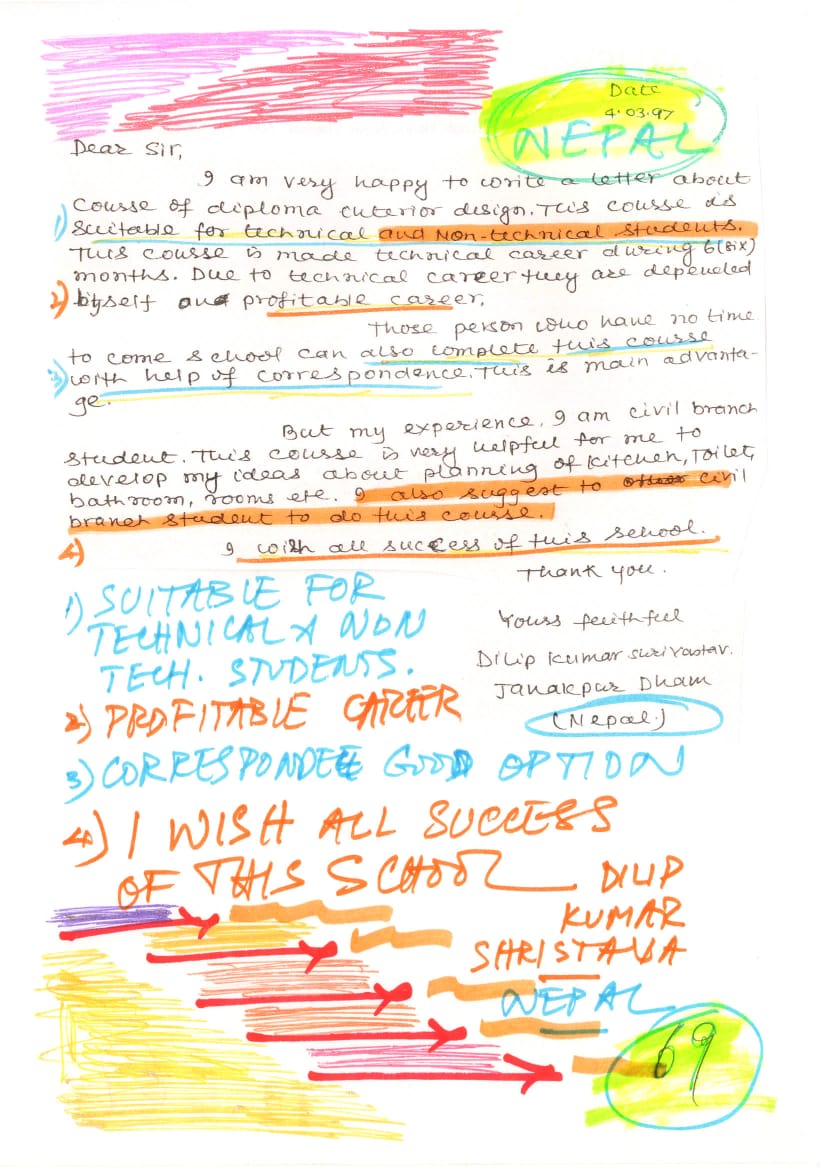 Date
4.03.97
NEPAL
Dear Sir,
I am very happy to write a letter about
Cousse of diploma interior design. This course is
1) Suitable for technical and Non-technical students.
This cousse is made technical career during 6(six)
months. Due to technical career they are depended
2) byself and profitable career.
Those person who have no time
to come school can also complete this course
3) with help of correspondence. This is main advanta-
ge.
But my experience, I am civil branch
student. This cousse is very helpful for me to
develop my ideas about planning of kitchen, Toilet,
bathroom, rooms etc. I also suggest to civil
branch student to do this course.
4) I wish all success of this school.
Thank you.
Yours feithful
Dilip Kumar Shrivastav.
Janakpur Dham
(Nepal.)
1) SUITABLE FOR
TECHNICAL & NON
TECH. STUDENTS.
2) PROFITABLE CAREER
3) CORRESPONDE GOOD OPTION
4) I WISH ALL SUCCESS
OF THIS SCHOOL
DILIP
KUMAR
SHRISTAVA
NEPAL
69